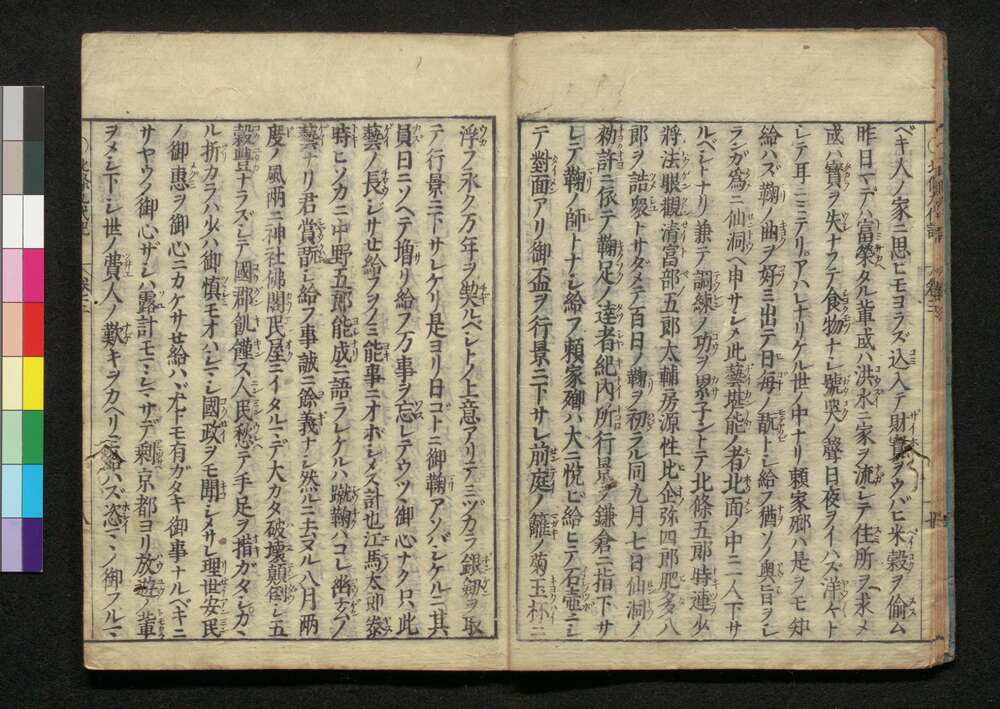 ベキ人ノ家ニ思ヒモヨラズ込入テ財寳ヲウバヒ米穀ヲ偷ム
昨日マデハ富榮タル輩或ハ洪水ニ家ヲ流レテ住所ヲ求メ
或ハ寳ヲ失ナフテ食物ナシ號哭ノ聲日夜ヲイハズ洋々ト
シテ耳ニミテリアハレナリケル世ノ中ナリ頼家卿ハ是ヲモ知
給ハズ鞠ノ曲ヲ好ミ出テ日毎ノ翫トシ給フ猶ソノ奥旨ヲシ
ランガ爲ニ仙洞ヘ申サレシ此藝堪能ノ者北面ノ中ニ一人下サ
ルベシトナリ兼テ調練ノ功ヲ累子ントテ北條五郎時連少
將法眼觀清富部五郎太輔房源性比企弥四郎肥多八
郎ヲ詰衆トサダメテ百日ノ鞠ヲ初ラル同九月七日仙洞ノ
勅許ニ依テ鞠足ノ達者紀内所行景ヲ鎌倉ニ指下サ
レテ鞠ノ師トナシ給フ頼家卿ハ大ニ悦ビ給ヒテ石壺ニシ
テ對面アリ御盃ヲ行景ニ下サレ前庭ノ籬ノ菊玉杯ニ
浮フ永ク万年ヲ契ルベシトノ上意アリテミヅカラ銀劔ヲ取
テ行景ニ下サレケリ是ヨリ日コトニ御鞠アソバシケルニ其
員日ニソヘテ増リ給フ万事ヲ忘レテウツ御心ナク只此
藝ノ長ジサせ給フヲノミ能事ニオボシメス計也江馬太郎泰
時ヒソカニ中野五郎能成ニ語ラレケルハ蹴鞠ハコレ幽玄ノ
藝ナリ君賞翫シ給フ事誠ニ餘義ナシ然ルニ去ヌル八月兩
度ノ風雨ニ神社佛閣民屋ニイタルマデ大カタ破壞顛倒シ五
穀豊ナラズシテ國郡飢饉ス人民愁テ手足ヲ措ガタシカヽ
ル折カラハ少ハ御慎モオハシマシ國政ヲモ聞シメサレ理世安民
ノ御惠ヲ御心ニカケサせ給ハヾ尤トモ有ガタキ御事ナルベキニ
サヤウノ御心ザシハ露計モマシマサデ剰京都ヨリ放遊ノ輩
ヲメシ下シ世ノ費人ノ歎キヲカヘリミ給ハズ恣マヽノ御フルマ